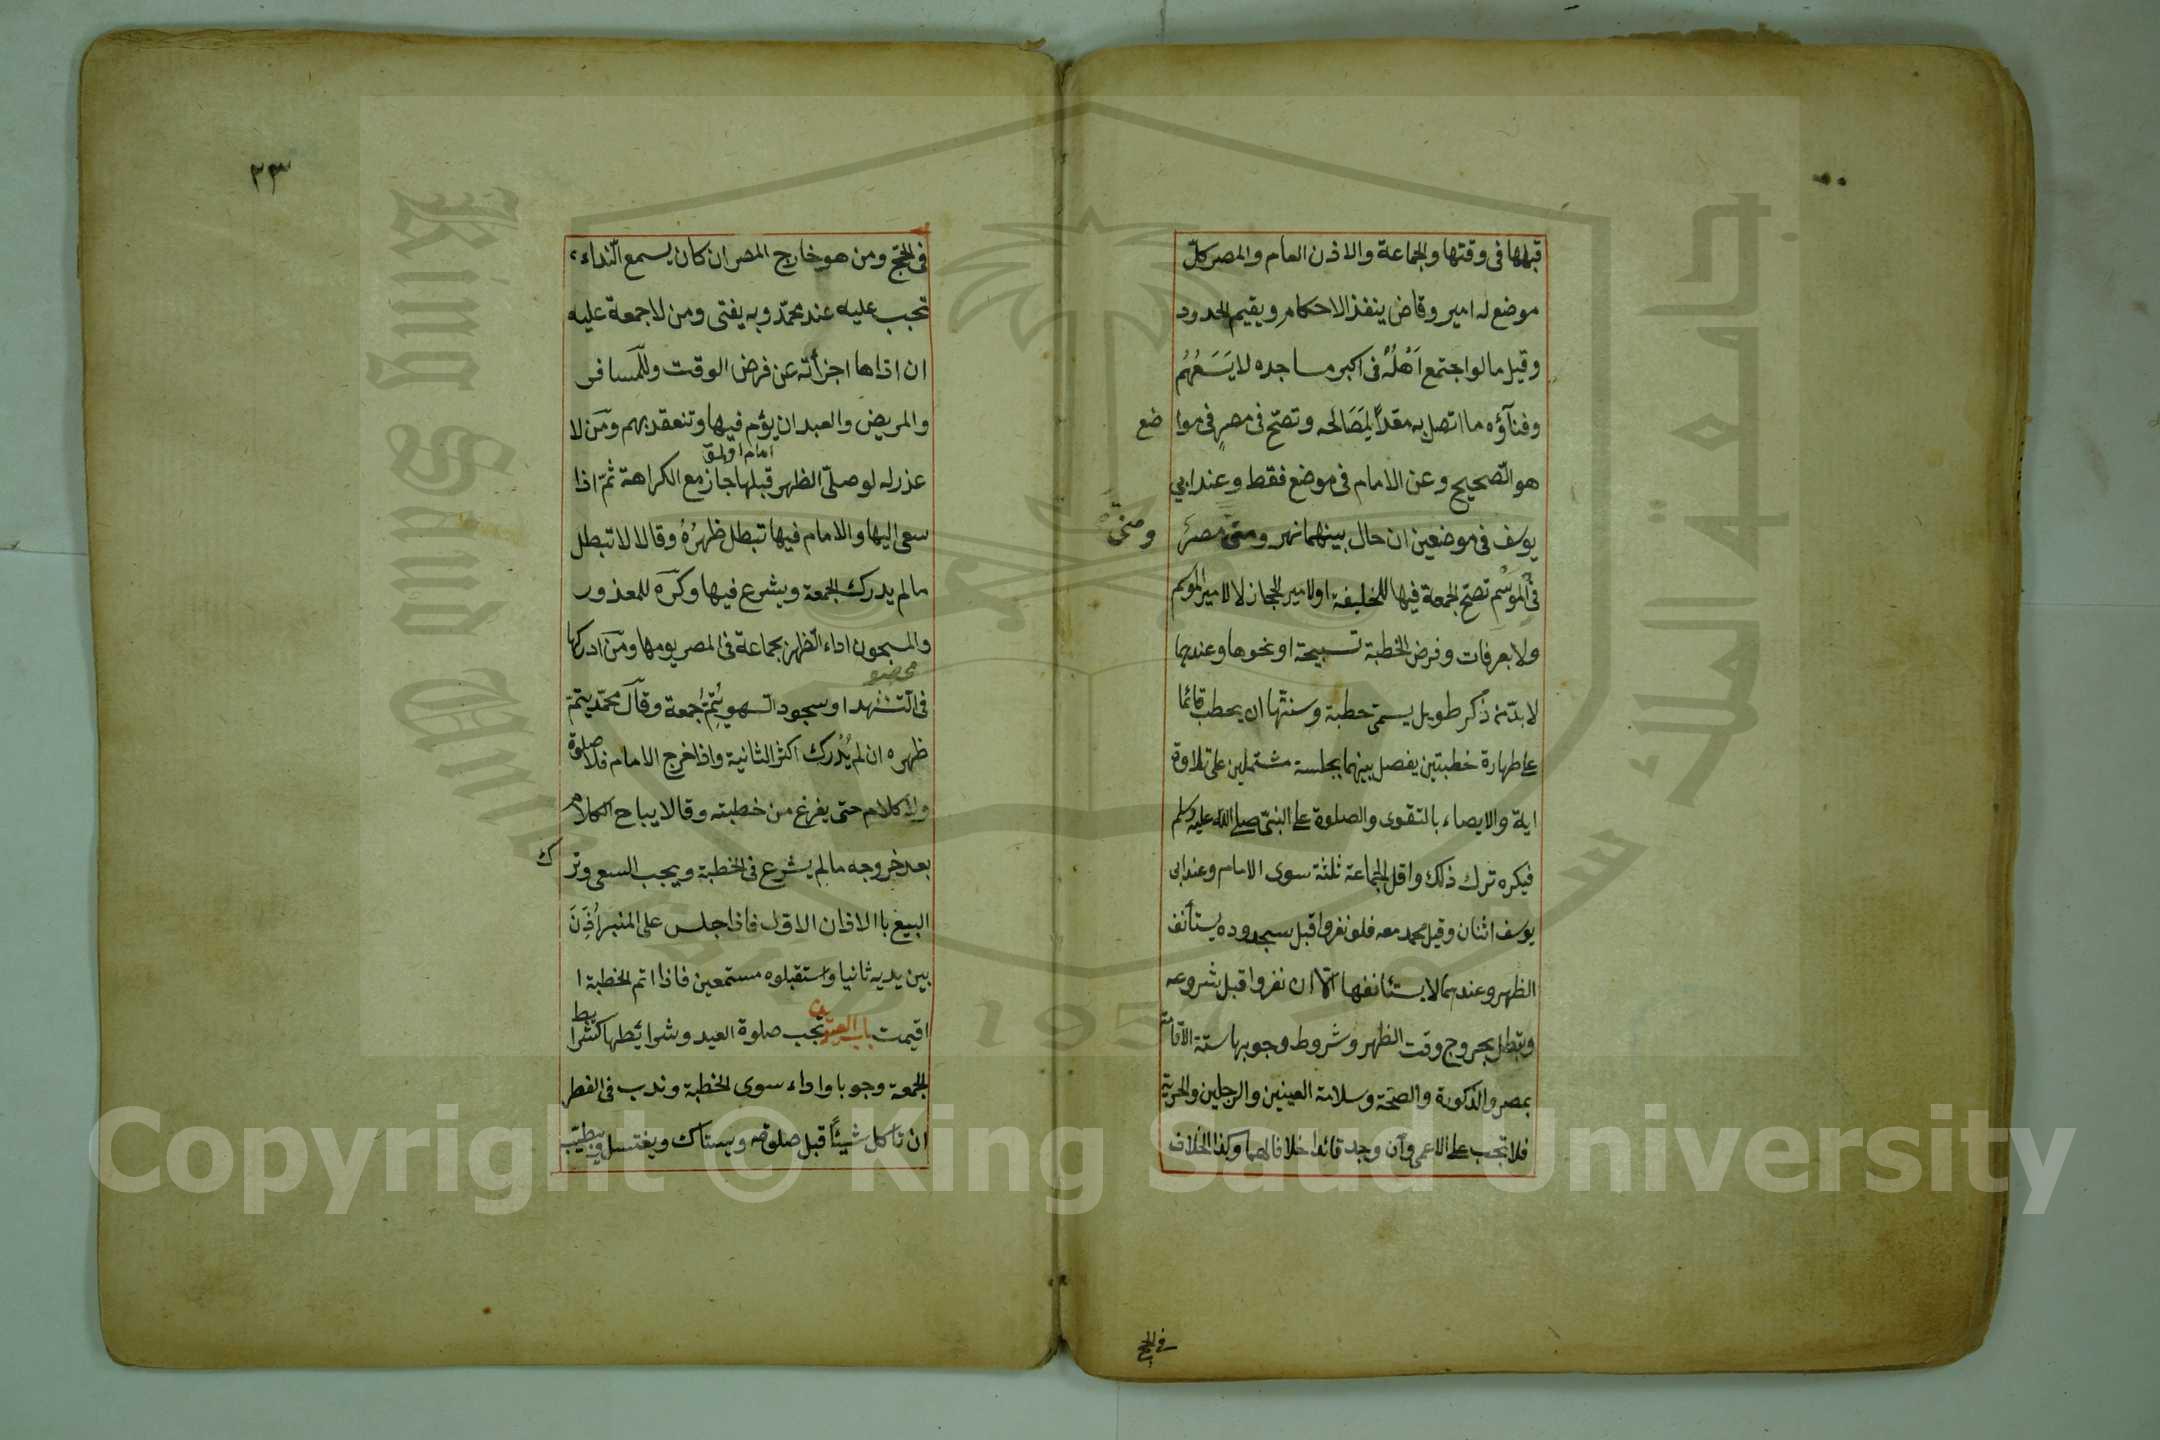 قبلها فى وقتها والجماعة والاذن العام والمصر كلّ
موضع له امير وقاض ينفذ الاحكام ويقيم الحدود
وقيل ما لو اجتمع اَهْلُهُ فى اكبر مساجده لا يَسَعُهُم
وفنآؤه ما اتصل به معدّاً لِمَصَالحه وتصحّ فى مصرٍ فى موا
ضع
هو الصّحيح وعن الامام فى موضع فقط وعند ابي
يوسف فى موضعين ان حال بينهما نهر ومنى مصرٌ
ومنىً
فى الْمَوْسِم تصحّ الجمعة فيها للخليفة او لامير الحجاز لا لامير الموسم
ولا بعرفات وفرض الخطبة تسبيحة او نحوها وعندهما
لا بدّ من ذكر طويل يسمّى خطبة وسنتها ان يخطب قائما
على طهارة خطبتين يفصل بينهما بجلسة مشتملين على تلاوة
اية والايصاء بالتقوى والصلوة على النبىّ صلى الله عليه وسلم
فيكره ترك ذلك واقل الجماعة ثلثة سوى الامام وعند ابى
يوسف اثنان وقيل محمد معه فلو نفروا قبل سجوده يستأنف
الظهر وعندهما لا يستأنفها الا ان نفروا قبل شروعه
وتبطل بخروج وقت الظهر وشروط وجوبها ستة الاقامة
بمصر والذكورة والصحّة وسلامة العينين والرجلين والحرية
فلا تجب على الاعمى وان وجد قائدا خلافا لهما وكذا الخلاف
فى الحج
٢٣
فى الحجّ ومن هو خارج المصر ان كان يسمع النّداء
تجب عليه عند محمّد وبه يفتى ومن لا جمعة عليه
ان ادّاها اجزأته عن فرض الوقت وللمسافر
والمريض والعبد ان يؤم فيها وتنعقد بهم ومَن لا
عذر له لو صلّى الظهر قبلها جاز مع الكراهة ثمّ اذا
سعى اليها والامام فيها تبطل ظهرُهُ وقالا لا تبطل
ما لم يدرك الجمعة ويشرع فيها وكره للمعذور
والمسجون اداء الظهر بجماعة فى المصر يومها ومن ادركها
فى التّشهد او سجود السهو يُتِمُّ جمعة وقال محمّد يتمّ
ظهره ان لم يُدْرك اكثر الثانية واذا خرج الامام فلا صلوة
ولا كلام حتى يفرغ من خطبته وقالا يباح الكلام
بعد خروجه ما لم يشرع فى الخطبة ويجب السعى وتر
ك
البيع با الاذان الاول فاذا جلس على المنبر اُذِّنَ
بين يديه ثانيا واستقبلوه مستمعين فاذا اتم الخطبة ا
اقيمت باب العيدين تجب صلوة العيد وشرائطها كشرائط
الجمعة وجوبا واداء سوى الخطبة وندب فى الفطر
ان تاكل شيئاً قبل صلوته ويستاك ويغتسل ويتطيّب
Copyright © King Saud University
King Saud University
جامعة الملك سعود
1957